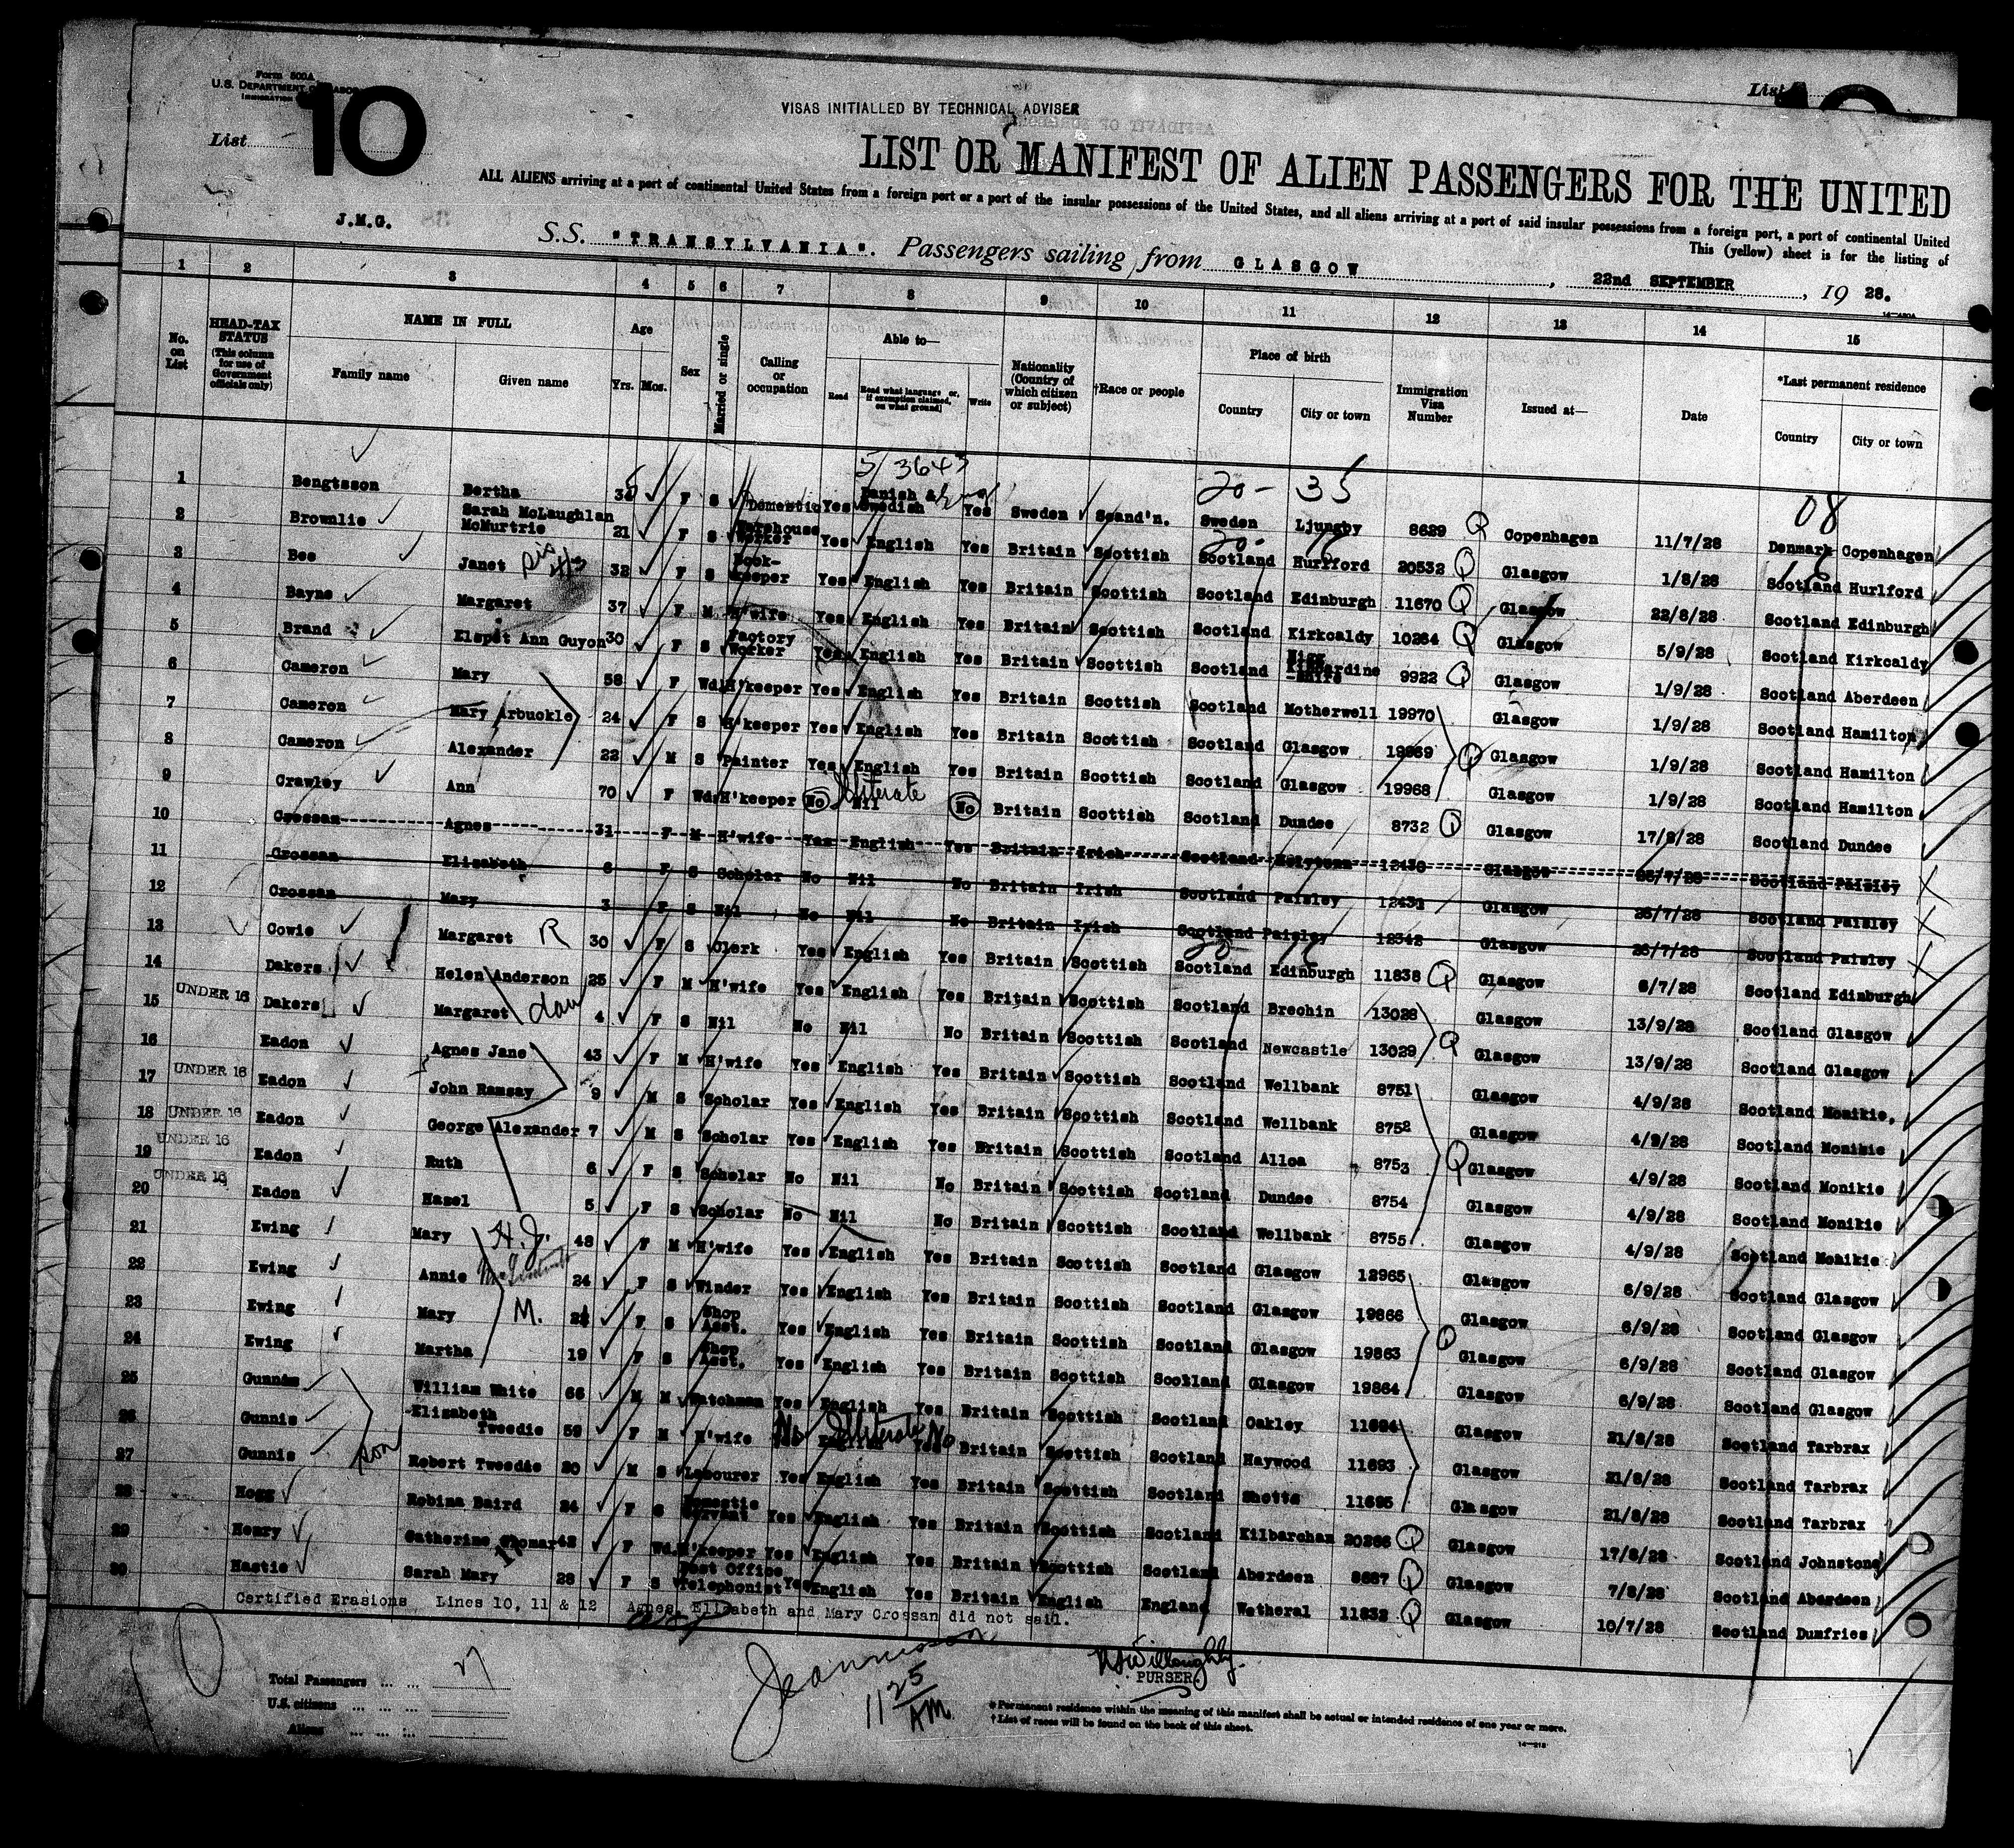 Form 500A
U.S. DEPARTMENT OF LABOR
IMMIGRATION
List 10
List 10
VISAS INITIALLED BY TECHNICAL ADVISER
LIST OR MANIFEST OF ALIEN PASSENGERS FOR THE UNITED
ALL ALIENS arriving at a port of continental United States from a foreign port or a port of the insular possessions of the United States, and all aliens arriving at a port of said insular possessions from a foreign port, a port of continental United
This (yellow) sheet is for the listing of
J.M.G. S.S. "TRANSYLVANIA". Passengers sailing from GLASGOW, 22nd SEPTEMBER, 1928.
1 2 3 4 5 6 7 8 9 10 11 12 13 14 15
No. on List
HEAD-TAX STATUS (This column for use of Government officials only)
NAME IN FULL Family name Given name
Age Yrs. Mos.
Sex
Married or single
Calling or occupation
Able to— Read Read what language or, if exemption claimed, on what ground Write
Nationality (Country of which citizen or subject)
†Race or people
Place of birth Country City or town
Immigration Visa Number
Issued at—
Date
*Last permanent residence Country City or town
5/3643 20- 35 08
1 Bengtsson Bertha F S Domestic Yes Danish & Swedish Engl Yes Sweden Scand'n. Sweden Ljungby 8629 Q Copenhagen 11/7/28 Denmark Copenhagen
2 Brownlie Sarah McLaughlan McMurtrie 21 F S Warehouse Worker Yes English Yes Britain Scottish Scotland Hurlford 20532 Q Glasgow 1/8/28 Scotland Hurlford
3 Bee Janet 32 F S Book-keeper Yes English Yes Britain Scottish Scotland Edinburgh 11670 Q Glasgow 22/8/28 Scotland Edinburgh
4 Bayne Margaret 37 F M H'wife Yes English Yes Britain Scottish Scotland Kirkcaldy 10264 Q Glasgow 5/9/28 Scotland Kirkcaldy
5 Brand Elspet Ann Guyon 30 F S Factory Worker Yes English Yes Britain Scottish Scotland Nigg Kincardine-shire 9922 Q Glasgow 1/9/28 Scotland Aberdeen
6 Cameron Mary 58 F Wd. H'keeper Yes English Yes Britain Scottish Scotland Motherwell 19970 Glasgow 1/9/28 Scotland Hamilton
7 Cameron Mary Arbuckle 24 F S H'keeper Yes English Yes Britain Scottish Scotland Glasgow 19969 Q Glasgow 1/9/28 Scotland Hamilton
8 Cameron Alexander 22 M S Painter Yes English Yes Britain Scottish Scotland Glasgow 19968 Glasgow 1/9/28 Scotland Hamilton
9 Crawley Ann 70 F Wd. H'keeper No Nil Illiterate No Britain Scottish Scotland Dundee 8732 Q Glasgow 17/8/28 Scotland Dundee
10 Crossan Agnes 31 F M H'wife Yes English Yes Britain Irish Scotland Holytown 12430 Glasgow 26/7/28 Scotland Paisley
11 Crossan Elizabeth 6 F S Scholar No Nil No Britain Irish Scotland Paisley 12431 Glasgow 26/7/28 Scotland Paisley
12 Crossan Mary 3 F S Nil No Nil No Britain Irish Scotland Paisley 12342 Glasgow 26/7/28 Scotland Paisley
13 Cowie Margaret R 30 F S Clerk Yes English Yes Britain Scottish Scotland Edinburgh 11838 Q Glasgow 6/7/28 Scotland Edinburgh
14 Dakers Helen Anderson 25 F M H'wife Yes English Yes Britain Scottish Scotland Brechin 13028 Glasgow 13/9/28 Scotland Glasgow
15 UNDER 16 Dakers Margaret dau 4 F S Nil No Nil No Britain Scottish Scotland Newcastle 13029 Q Glasgow 13/9/28 Scotland Glasgow
16 Eadon Agnes Jane 43 F M H'wife Yes English Yes Britain Scottish Scotland Wellbank 8751 Glasgow 4/9/28 Scotland Monikie,
17 UNDER 16 Eadon John Ramsay 9 M S Scholar Yes English Yes Britain Scottish Scotland Wellbank 8752 Glasgow 4/9/28 Scotland Monikie
18 UNDER 16 Eadon George Alexander 7 M S Scholar Yes English Yes Britain Scottish Scotland Alloa 8753 Q Glasgow 4/9/28 Scotland Monikie
19 UNDER 16 Eadon Ruth 6 F S Scholar No Nil No Britain Scottish Scotland Dundee 8754 Glasgow 4/9/28 Scotland Monikie
20 UNDER 16 Eadon Hazel 5 F S Scholar No Nil No Britain Scottish Scotland Wellbank 8755 Glasgow 4/9/28 Scotland Monikie
21 Ewing Mary H.J. 48 F M H'wife Yes English Yes Britain Scottish Scotland Glasgow 12965 Glasgow 6/9/28 Scotland Glasgow
22 Ewing Annie 24 F S Winder Yes English Yes Britain Scottish Scotland Glasgow 19866 Glasgow 6/9/28 Scotland Glasgow
23 Ewing Mary M. F S Shop Asst. Yes English Yes Britain Scottish Scotland Glasgow 19863 Q Glasgow 6/9/28 Scotland Glasgow
24 Ewing Martha 19 F S Shop Asst. Yes English Yes Britain Scottish Scotland Glasgow 19864 Glasgow 6/9/28 Scotland Glasgow
25 Gunnis William White 66 M M Watchman Yes English Yes Britain Scottish Scotland Oakley 11694 Glasgow 21/8/28 Scotland Tarbrax
26 Gunnis Elizabeth Tweedie 59 F M H'wife No Illiterate No Britain Scottish Scotland Haywood 11693 Glasgow 21/8/28 Scotland Tarbrax
27 Gunnis son Robert Tweedie 20 M S Labourer Yes English Yes Britain Scottish Scotland Shotts 11695 Glasgow 21/8/28 Scotland Tarbrax
28 Hogg Robina Baird 24 F S Domestic Servant Yes English Yes Britain Scottish Scotland Kilbarchan 20266 Q Glasgow 17/8/28 Scotland Johnstone
29 Henry Catherine Thomar 42 F Wd. H'keeper Yes English Yes Britain Scottish Scotland Aberdeen 8687 Q Glasgow 7/8/28 Scotland Aberdeen
30 Hastie Sarah Mary 28 F S Post Office Telephonist Yes English Yes Britain English England Wetheral 11832 Q Glasgow 10/7/28 Scotland Dumfries
Certified Erasions Lines 10, 11 & 12 Agnes, Elizabeth and Mary Crossan did not sail.
PURSER.
11 25 AM
Total Passengers ... ... 27
U.S. citizens ... ... ...
Aliens ... ... ...
* Permanent residence within the meaning of this manifest shall be actual or intended residence of one year or more.
† List of races will be found on the back of this sheet.
14—213